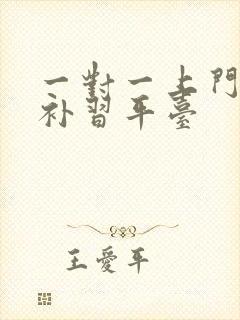 一對一上門
补習平臺
王愛平